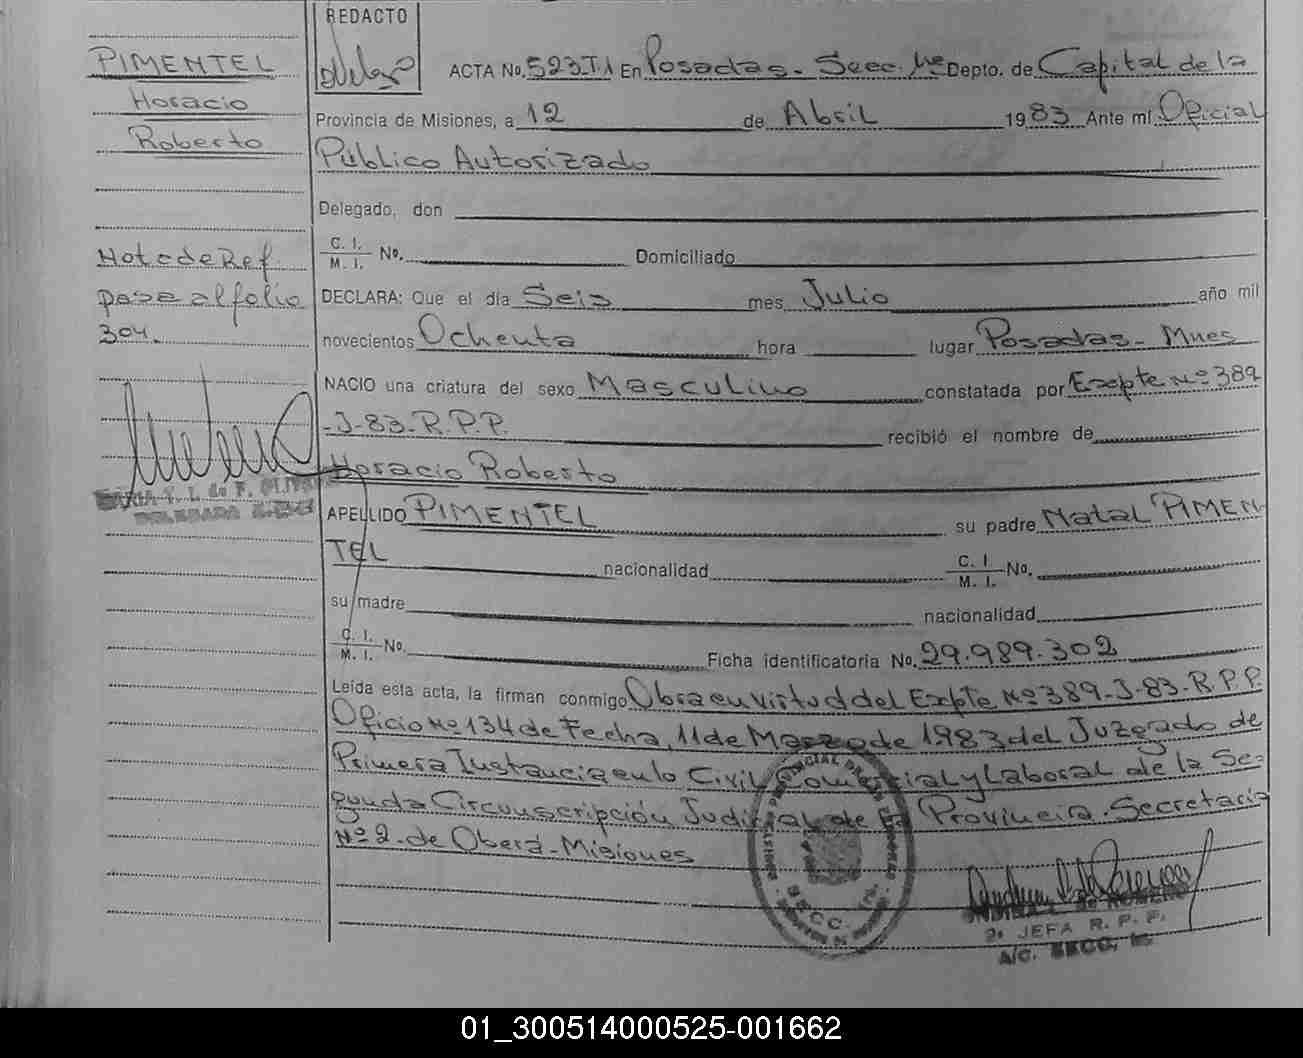 PIMENTEL
Horacio
Roberto
Nota de Ref.
pasa al folio
304.
REDACTO
ACTA No. 523.T.1 En Posadas. Secc. 1ra Depto. de Capital de la
Provincia de Misiones, a 12 de Abril 1983 Ante mí Oficial
Público Autorizado
Delegado, don
C. I. M. I. No. Domiciliado
DECLARA: Que el día Seis mes Julio año mil
novecientos Ochenta hora lugar Posadas - Mnes
NACIO una criatura del sexo Masculino constatada por Expte Nº 389
-J-83-R.P.P. recibió el nombre de
Horacio Roberto
APELLIDO PIMENTEL su padre Natal PIMEN
TEL nacionalidad C. I. M. I. No.
su madre nacionalidad
C. I. M. I. No. Ficha identificatoria No. 29.989.302
Leída esta acta, la firman conmigo Obra en virtud del Expte Nº 389-J-83-R.P.P.
Oficio Nº 134 de Fecha, 11 de Marzo de 1983 del Juzgado de
Primera Instancia en lo Civil Comercial y Laboral de la Se-
gunda Circunscripción Judicial de la Provincia. Secretaria
Nº 2 - de Oberá - Misiones
SECC. 1ra.
2a JEFA R. P. P.
A/C. SECC. 1a
01_300514000525-001662